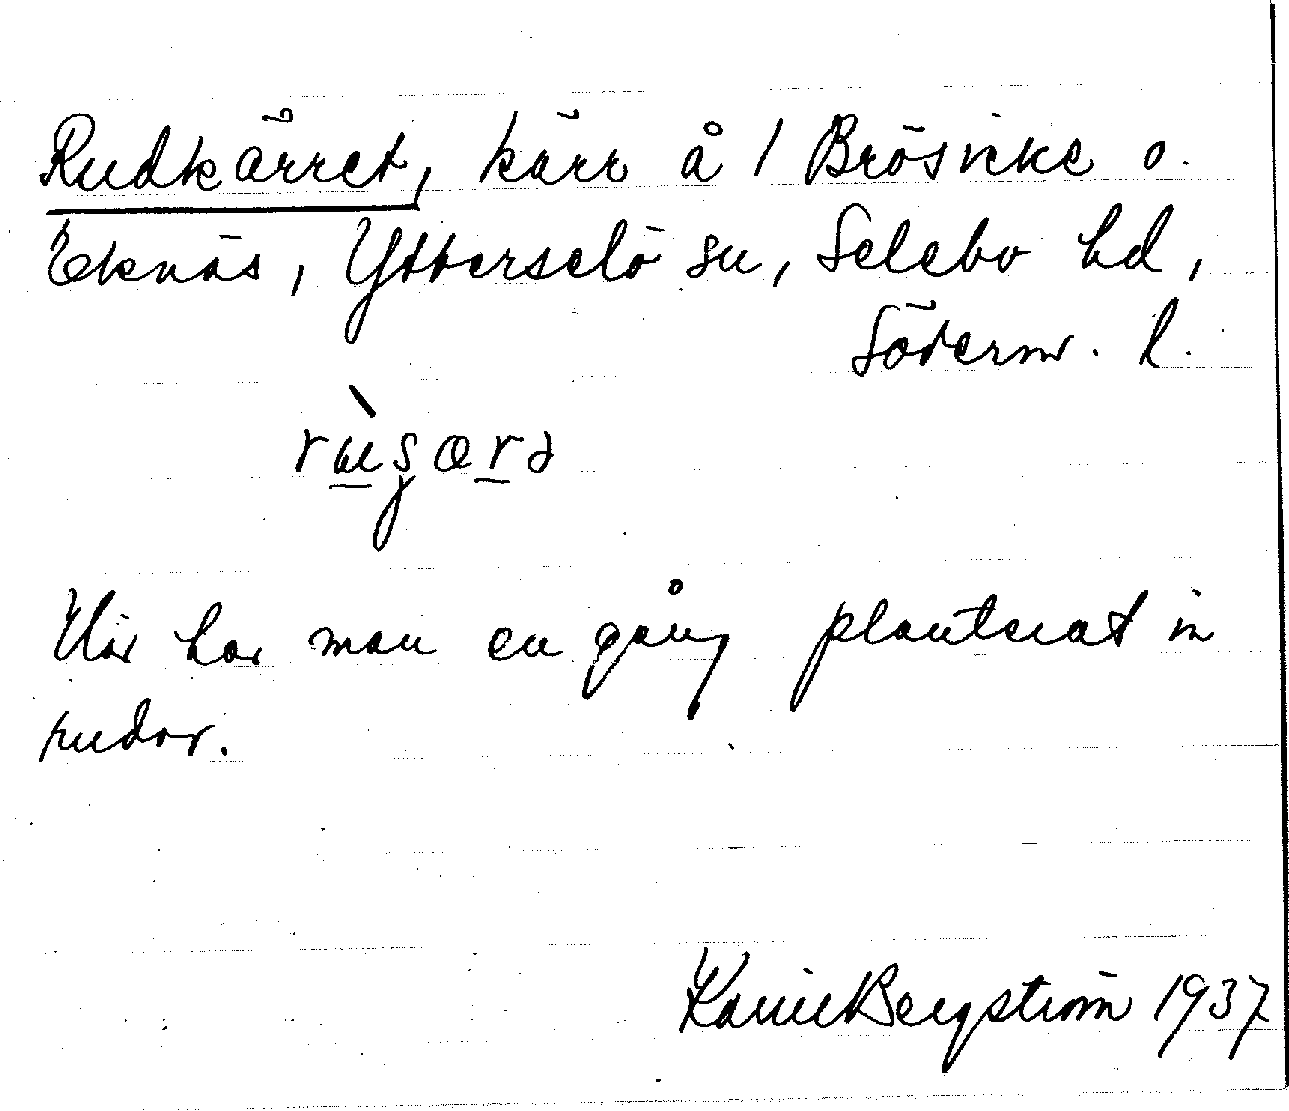 Rudkärret, kärr å 1 Brösicke o.
Eknäs, Ytterselö sn, Selebo hd,
Söderm. l.
Här har man en gång planterat in
rudor.
Karin Bergström 1937